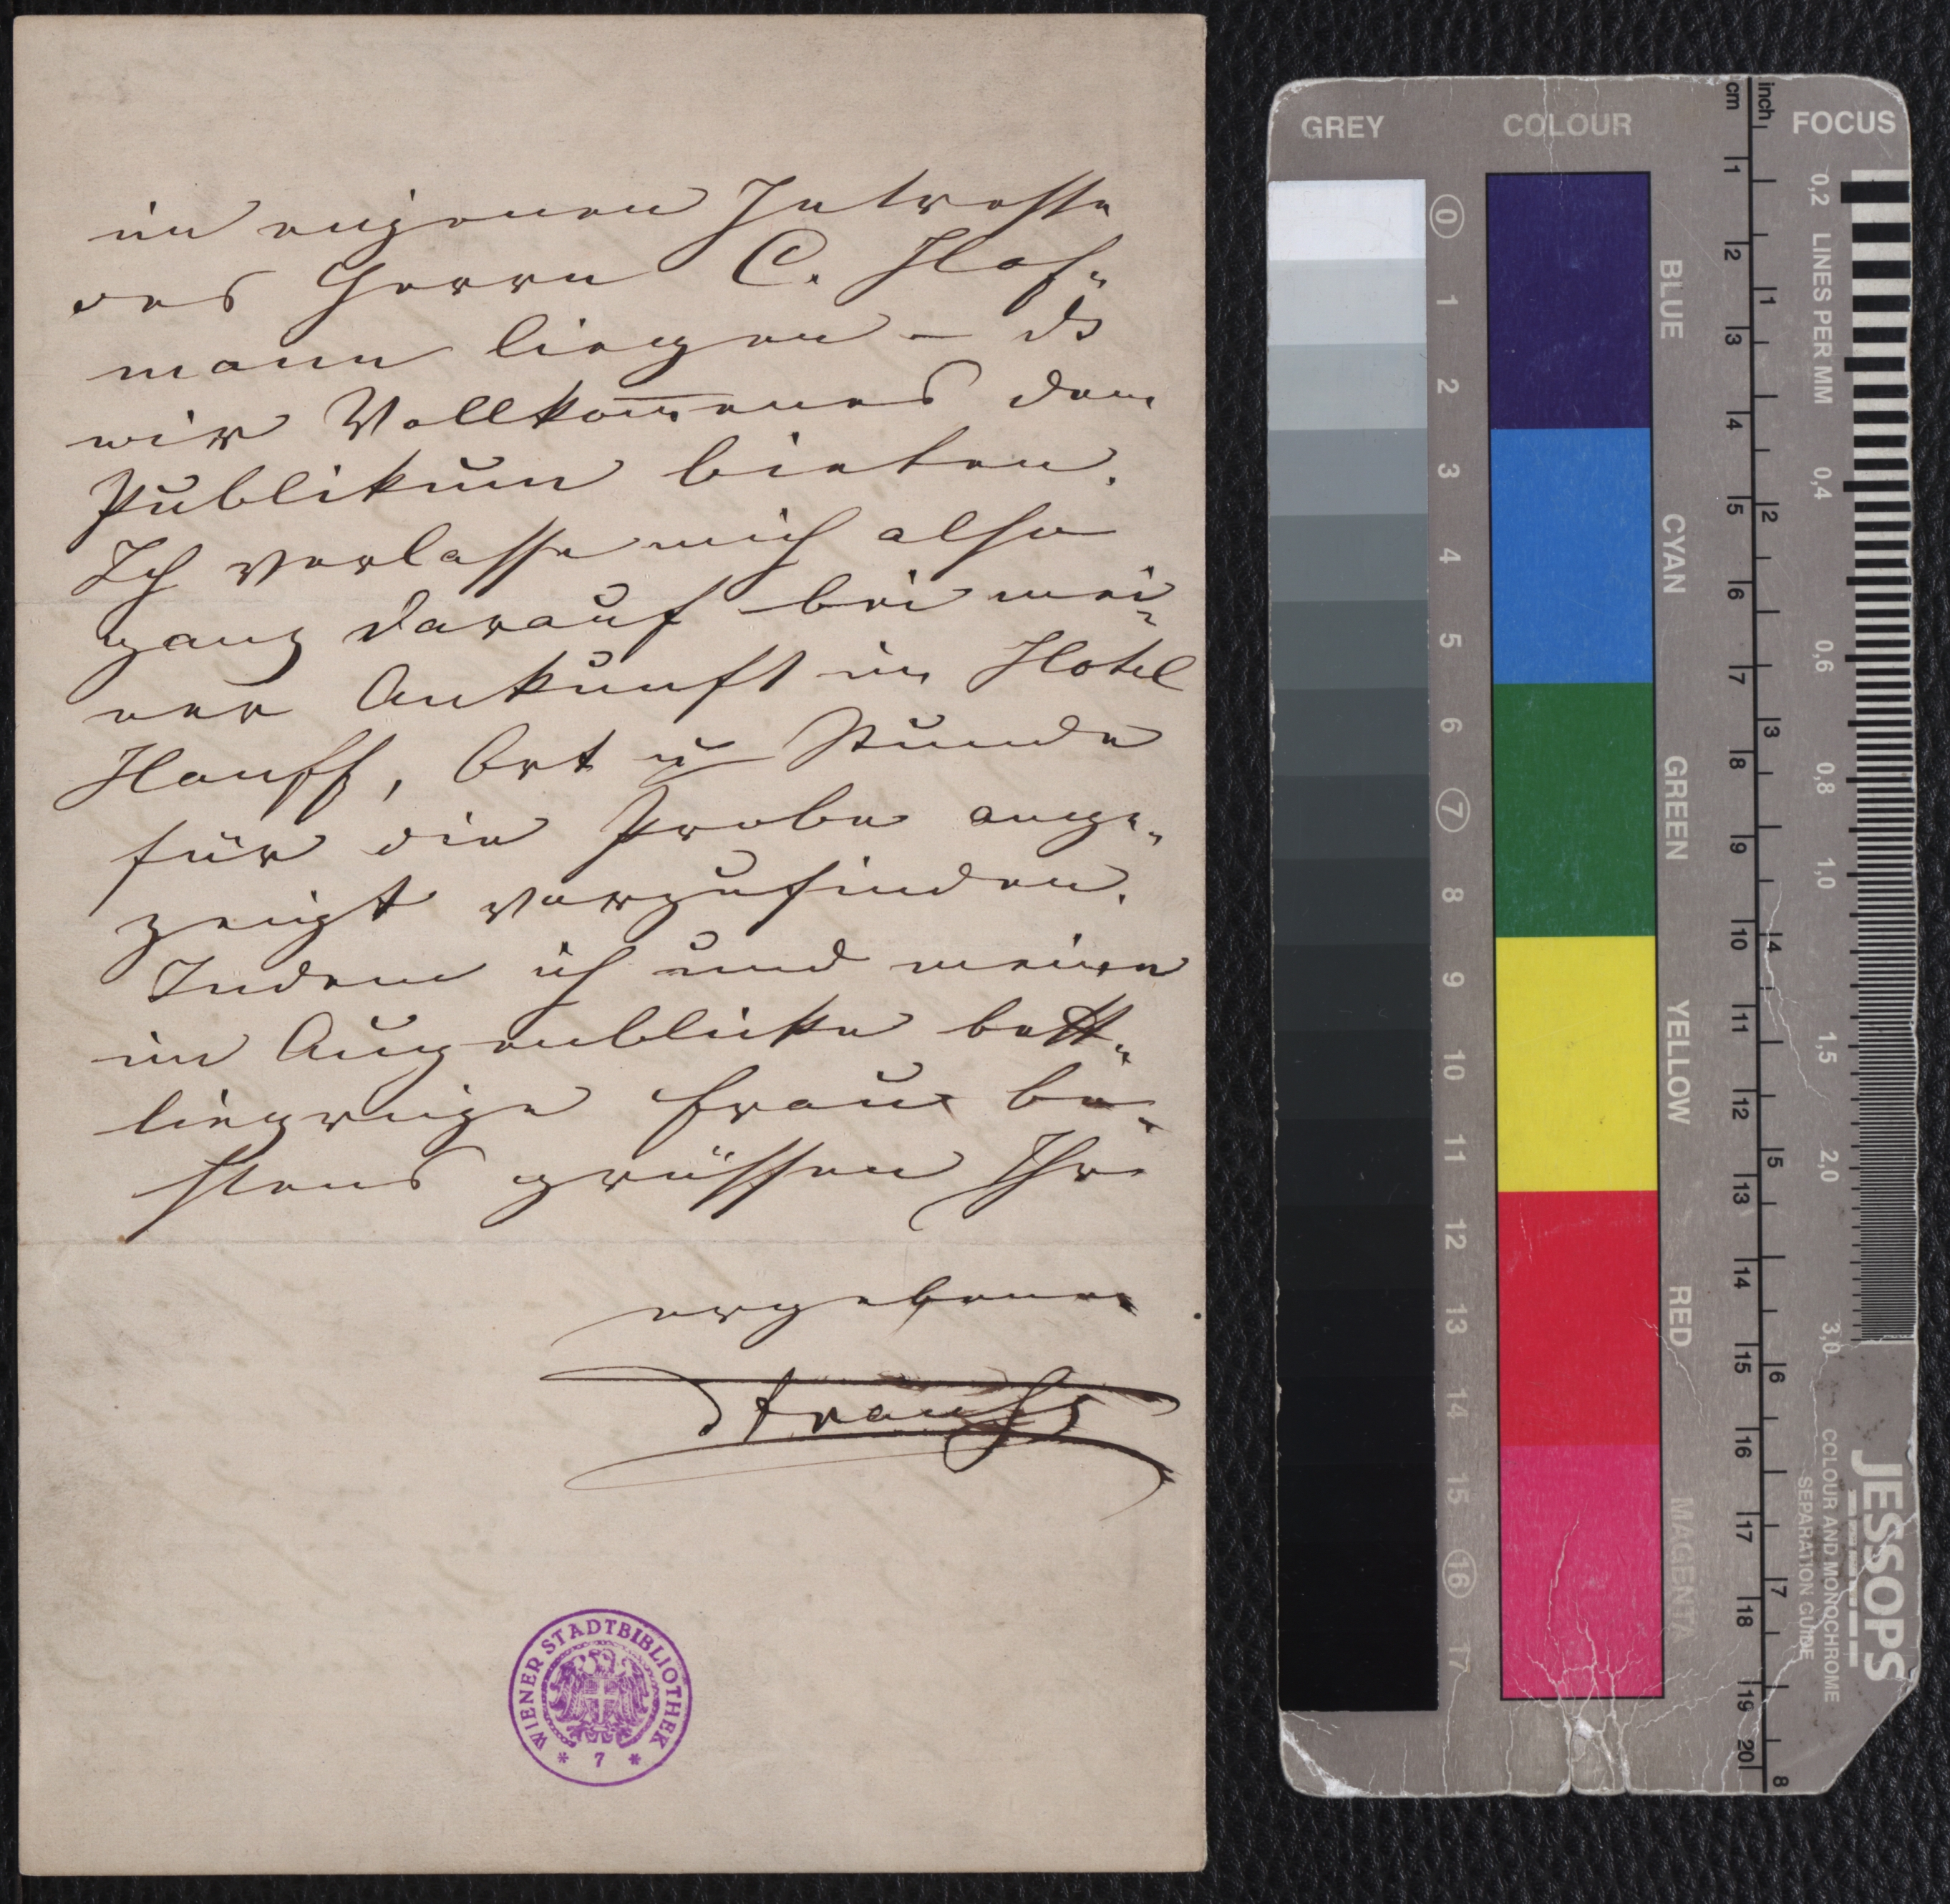 im eigenen Intresse
des Herrn C. Hof-
mann liegen – ds
wir Vollkom̄enes dem
Publikum bieten.
Ich verlasse mich also
ganz darauf bei mei-
ner Ankunft im Hotel
Hauff, Ort u Stunde
für die Probe ange-
zeigt vorzufinden.
Indem ich und meine
im Augenblicke bett-
liegrige Frau be-
stens grüssen Ihr
ergebener
Strauss
WIENER STADTBIBLIOTHEK
* 7 *
GREY COLOUR FOCUS
cm inch
0 1 2 3 4 5 6 7 8 9 10 11 12 13 14 15 16 17
BLUE
CYAN
GREEN
YELLOW
RED
MAGENTA
1 2 3 4 5 6 7 8 9 10 11 12 13 14 15 16 17 18 19 20
1 2 3 4 5 6 7 8
0,2 LINES PER MM 0,4 0,6 0,8 1,0 1,5 2,0 3,0
JESSOPS
COLOUR AND MONOCHROME
SEPARATION GUIDE